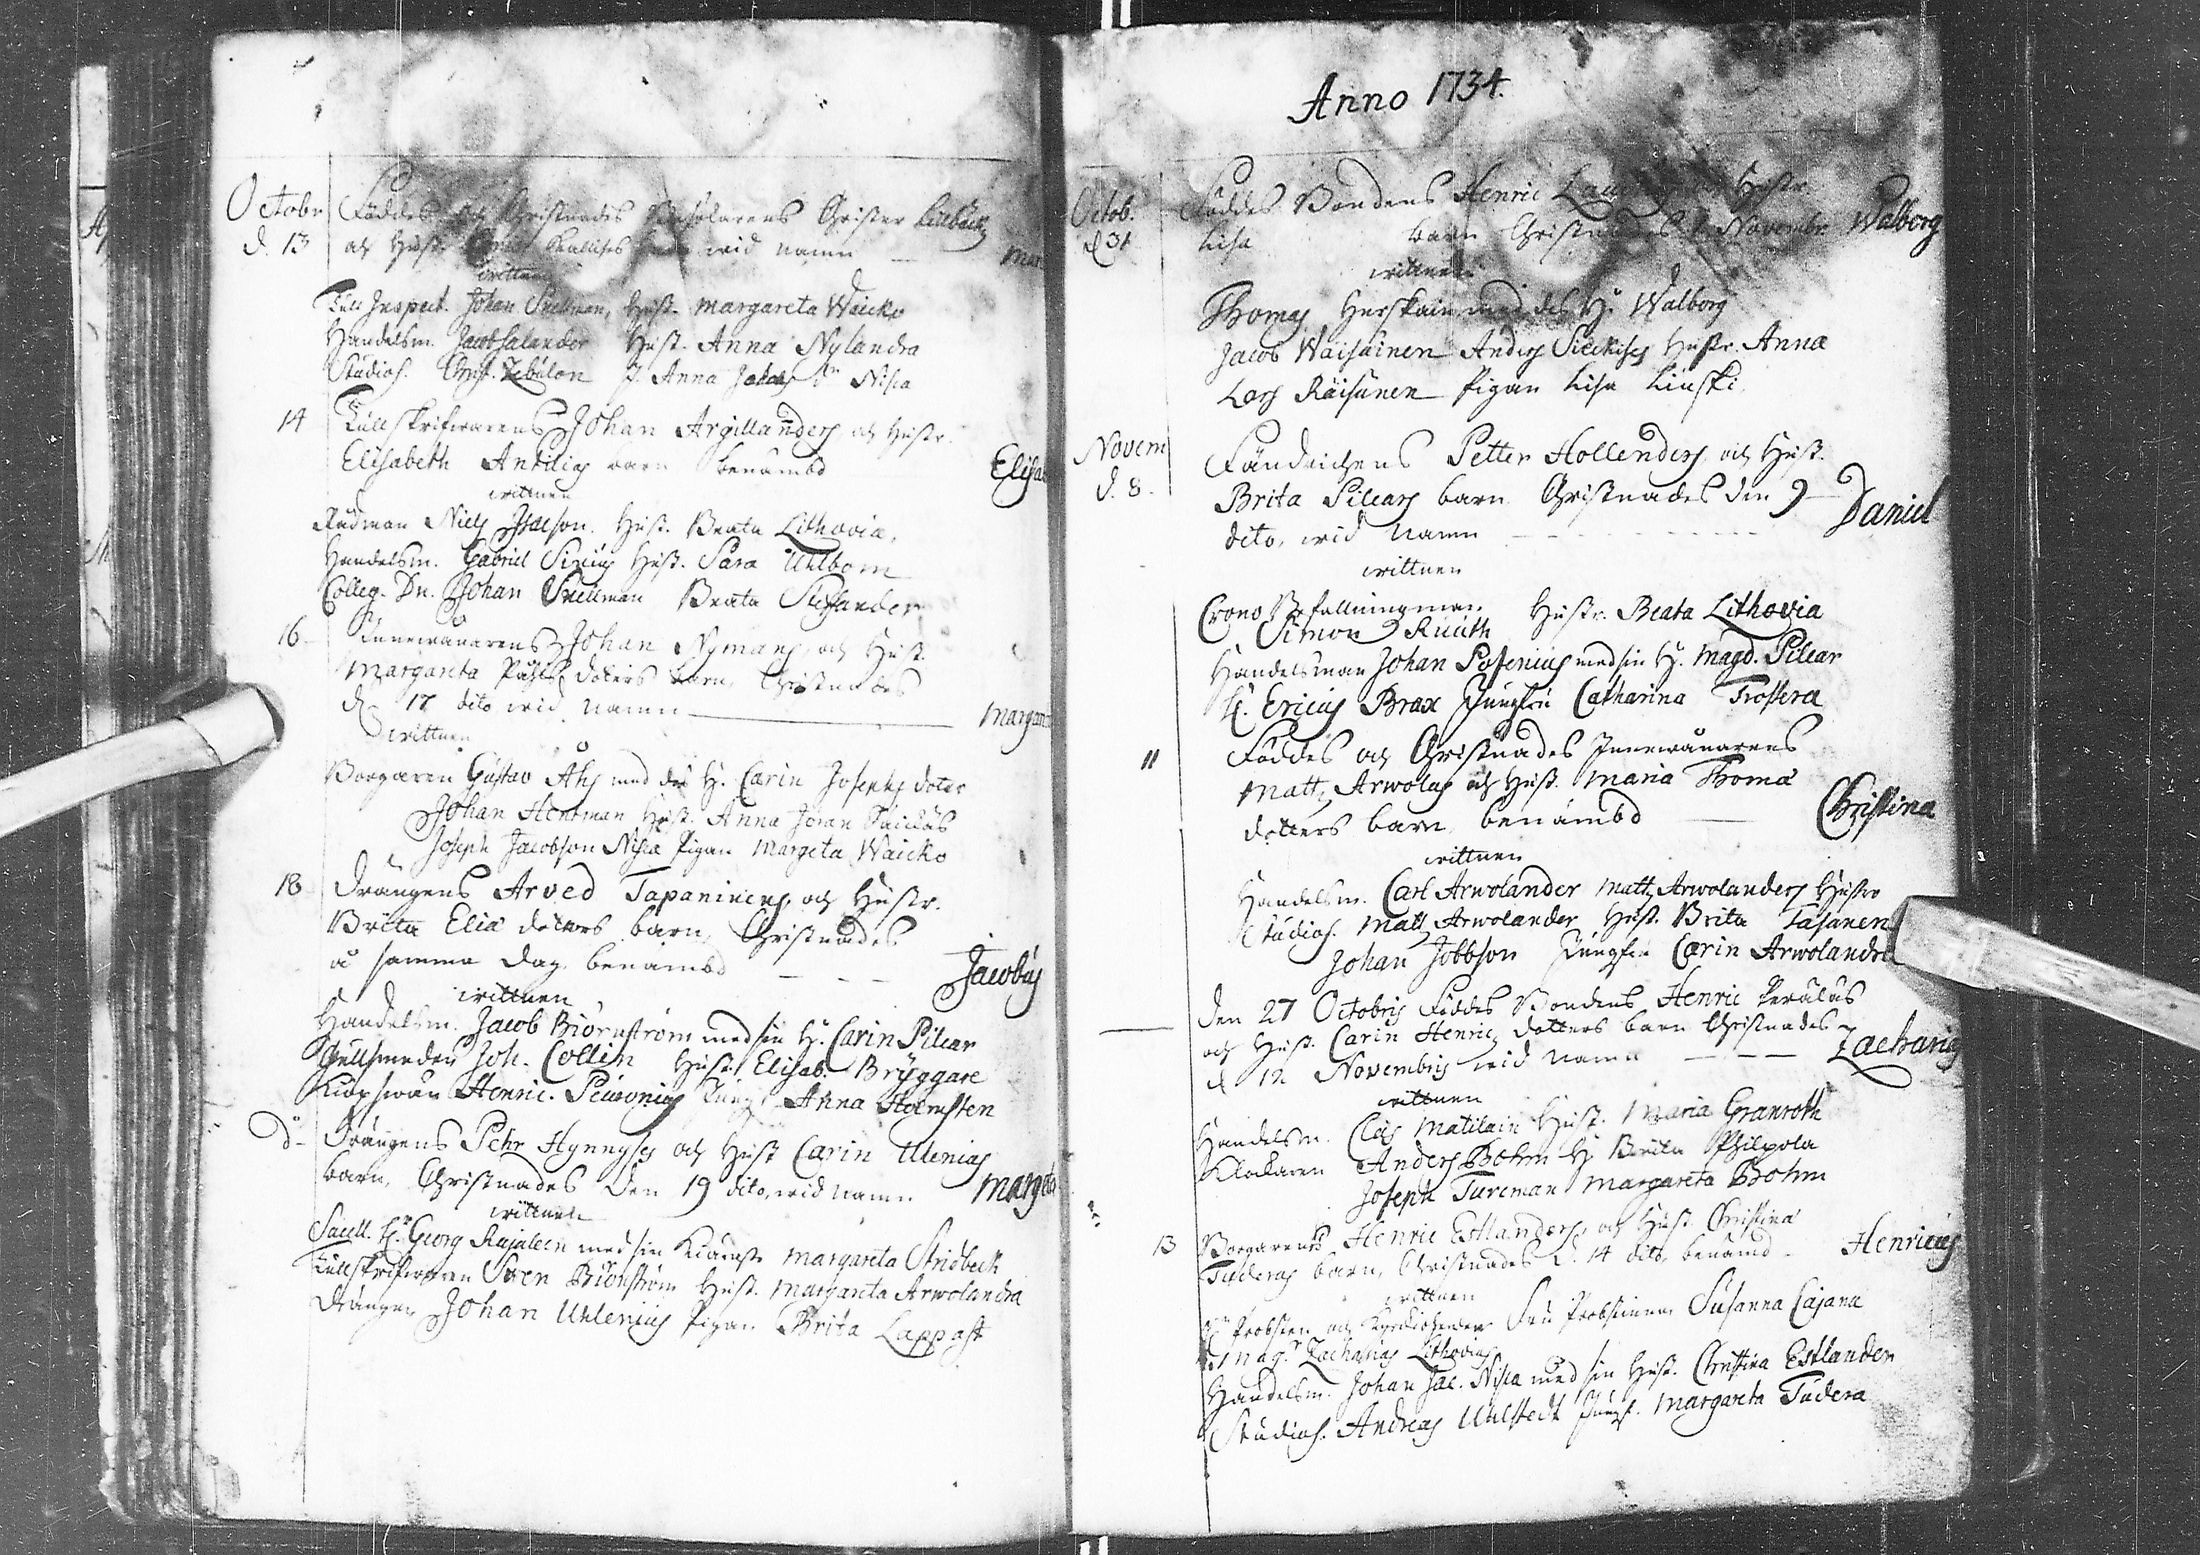 Octobr Föddes och Christnades Christer Lillbäck
d. 13 och Hust. barn wid namn
wittnen
Tull Inspect. Johan Snellman, Hust. Margareta Waicko
Handelsm. Jacob Salander Hust. Anna Nylandra
Studios. Christ. Zebulon J. Anna Jacobs dr Nisca
14 Tullskrifwarens Johan Argillanders och Hustr.
Elisabeth Antilias barn benämbd Elisa
wittnen
Rådman Niels Isacson. Hust. Beata Lithovia,
Handelsm. Gabriel Sirius Hust. Sara Uhlbom
Colleg. Dn. Johan Snellman Beata Steffander
16 Innewånarens Johan Nymans och Hust.
Margareta Påhls doters barn, Christnades
d. 17 dito wid namn Margare
wittnen
Borgaren Gustav Ahs med des H. Carin Josephs doter
Johan Hentman Hust. Anna Jöran
Joseph Jacobson Nisca Pigan Margeta Waicko
18 Drängens Arved Tapaninens och Hustr.
Brita Eliæ doters barn, Christnades
å samma dag benämbd Jacobus
wittnen
Handelsm. Jacob Biörnström med sin H. Carin Pilcar
Gullsmeden Joh. Collin Hust. Elisab. Bryggare
Henric. Peuronius Jungf. Anna Holmsten
do Drängens Pehr Hynnyses och Hust Carin Ulenias
barn, Christnades den 19 dito, wid namn Margeta
wittnen
Sacell. Hr Georg Rajaleen med sin Kiäresta Margareta Stridbeck
Tullskrifwaren Sven Biörnström Hust. Margareta Arwolandra
Drängen Johan Uhlenius Pigan Brita Lappast
Anno 1734.
Octob. Föddes Bondens Henric och Hustr.
d 31 Lisa barn Christnades Novembr. Walborg
wittnen
Thomas Herskain med des H. Walborg
Jacob Wäisäinen Anders Hustr. Anna
Lars Räisänen Pigan Lisa Linski
Novem Fändrichens Petter Hollenders och Hust.
d. 8. Brita Pilcars barn Christnades den 9 Daniel
dito, wid namn
wittnen
Crono Befallningsman Hustr. Beata Lithovia
Simon Ruuth
Handelsman Johan Posenius med sin H. Magd. Pilcar
H. Ericus Brax Jungfru Catharina Frossera
11 Föddes och Christnades Innewånarens
Matts Arwolas och Hust. Maria Thomæ
dotters barn, benämbd Christina
wittnen
Handelsm. Carl Arwolander Matts Arwolanders Hustro
Studios. Matts Arwolander Hust. Brita Tasanen
Johan Jobbson Jungfru Carin Arwolandra
Den 27 Octobris Föddes Bondens Henric Peräläs
och Hust. Carin Henrics dotters barn Christnades
d 12 Novembris wid namn Zacharias
wittnen
Handelsm. Clas Matilain Hust. Maria Granroth
Klockaren Anders Bohm H. Brita Philpola
Joseph Turcman Margareta Bohm
13 Borgarens Henric Estlanders, och Hust. Christina
Tuderas barn, Christnades d. 14 dito, benämd Henricus
wittnen
Probsten och Kyrckioherden Fru Probstinnan Susanna Cajana
Magr Zacharias Lithovius
Handelsm. Johan Jac. Nisca med sin Hust. Christina Estlander
Studios. Andreas Uhlstedt Jungf. Margareta Tudera